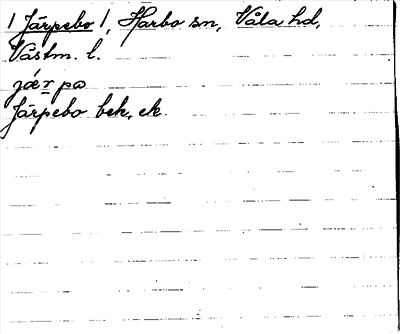 / Järpebo /, Harbo sn, Våla hd,
Västm. l.
jærpo
Järpebo bek, ek.